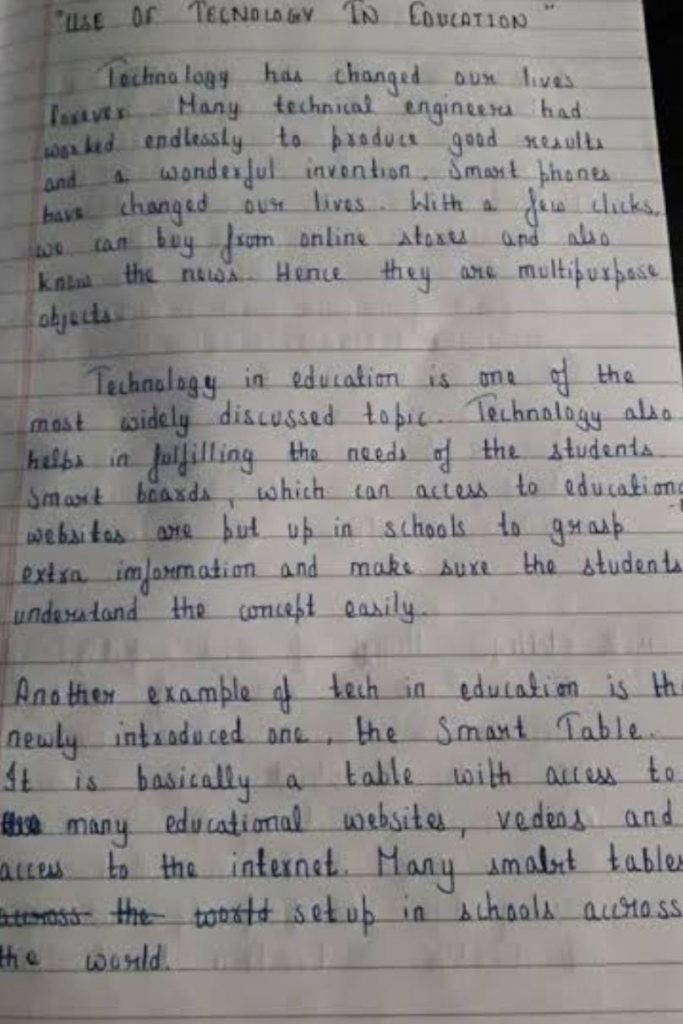 "USE OF TECNOLOGY IN EDUCATION"
Technology has changed our lives
forever. Many technical engineers had
worked endlessly to produce good results
and a wonderful invention. Smart phones
have changed our lives. With a few clicks,
we can buy from online stores and also
know the news. Hence they are multipurpose
objects.
Technology in education is one of the
most widely discussed topic. Technology also
helps in fulfilling the needs of the students.
Smart boards, which can access to education
websites are put up in schools to grasp
extra information and make sure the students
understand the concept easily.
Another example of tech in education is th
newly introduced one, the Smart Table.
It is basically a table with access to
many educational websites, vedeos and
access to the internet. Many smalrt tables
accross the world set up in schools accross
the world.